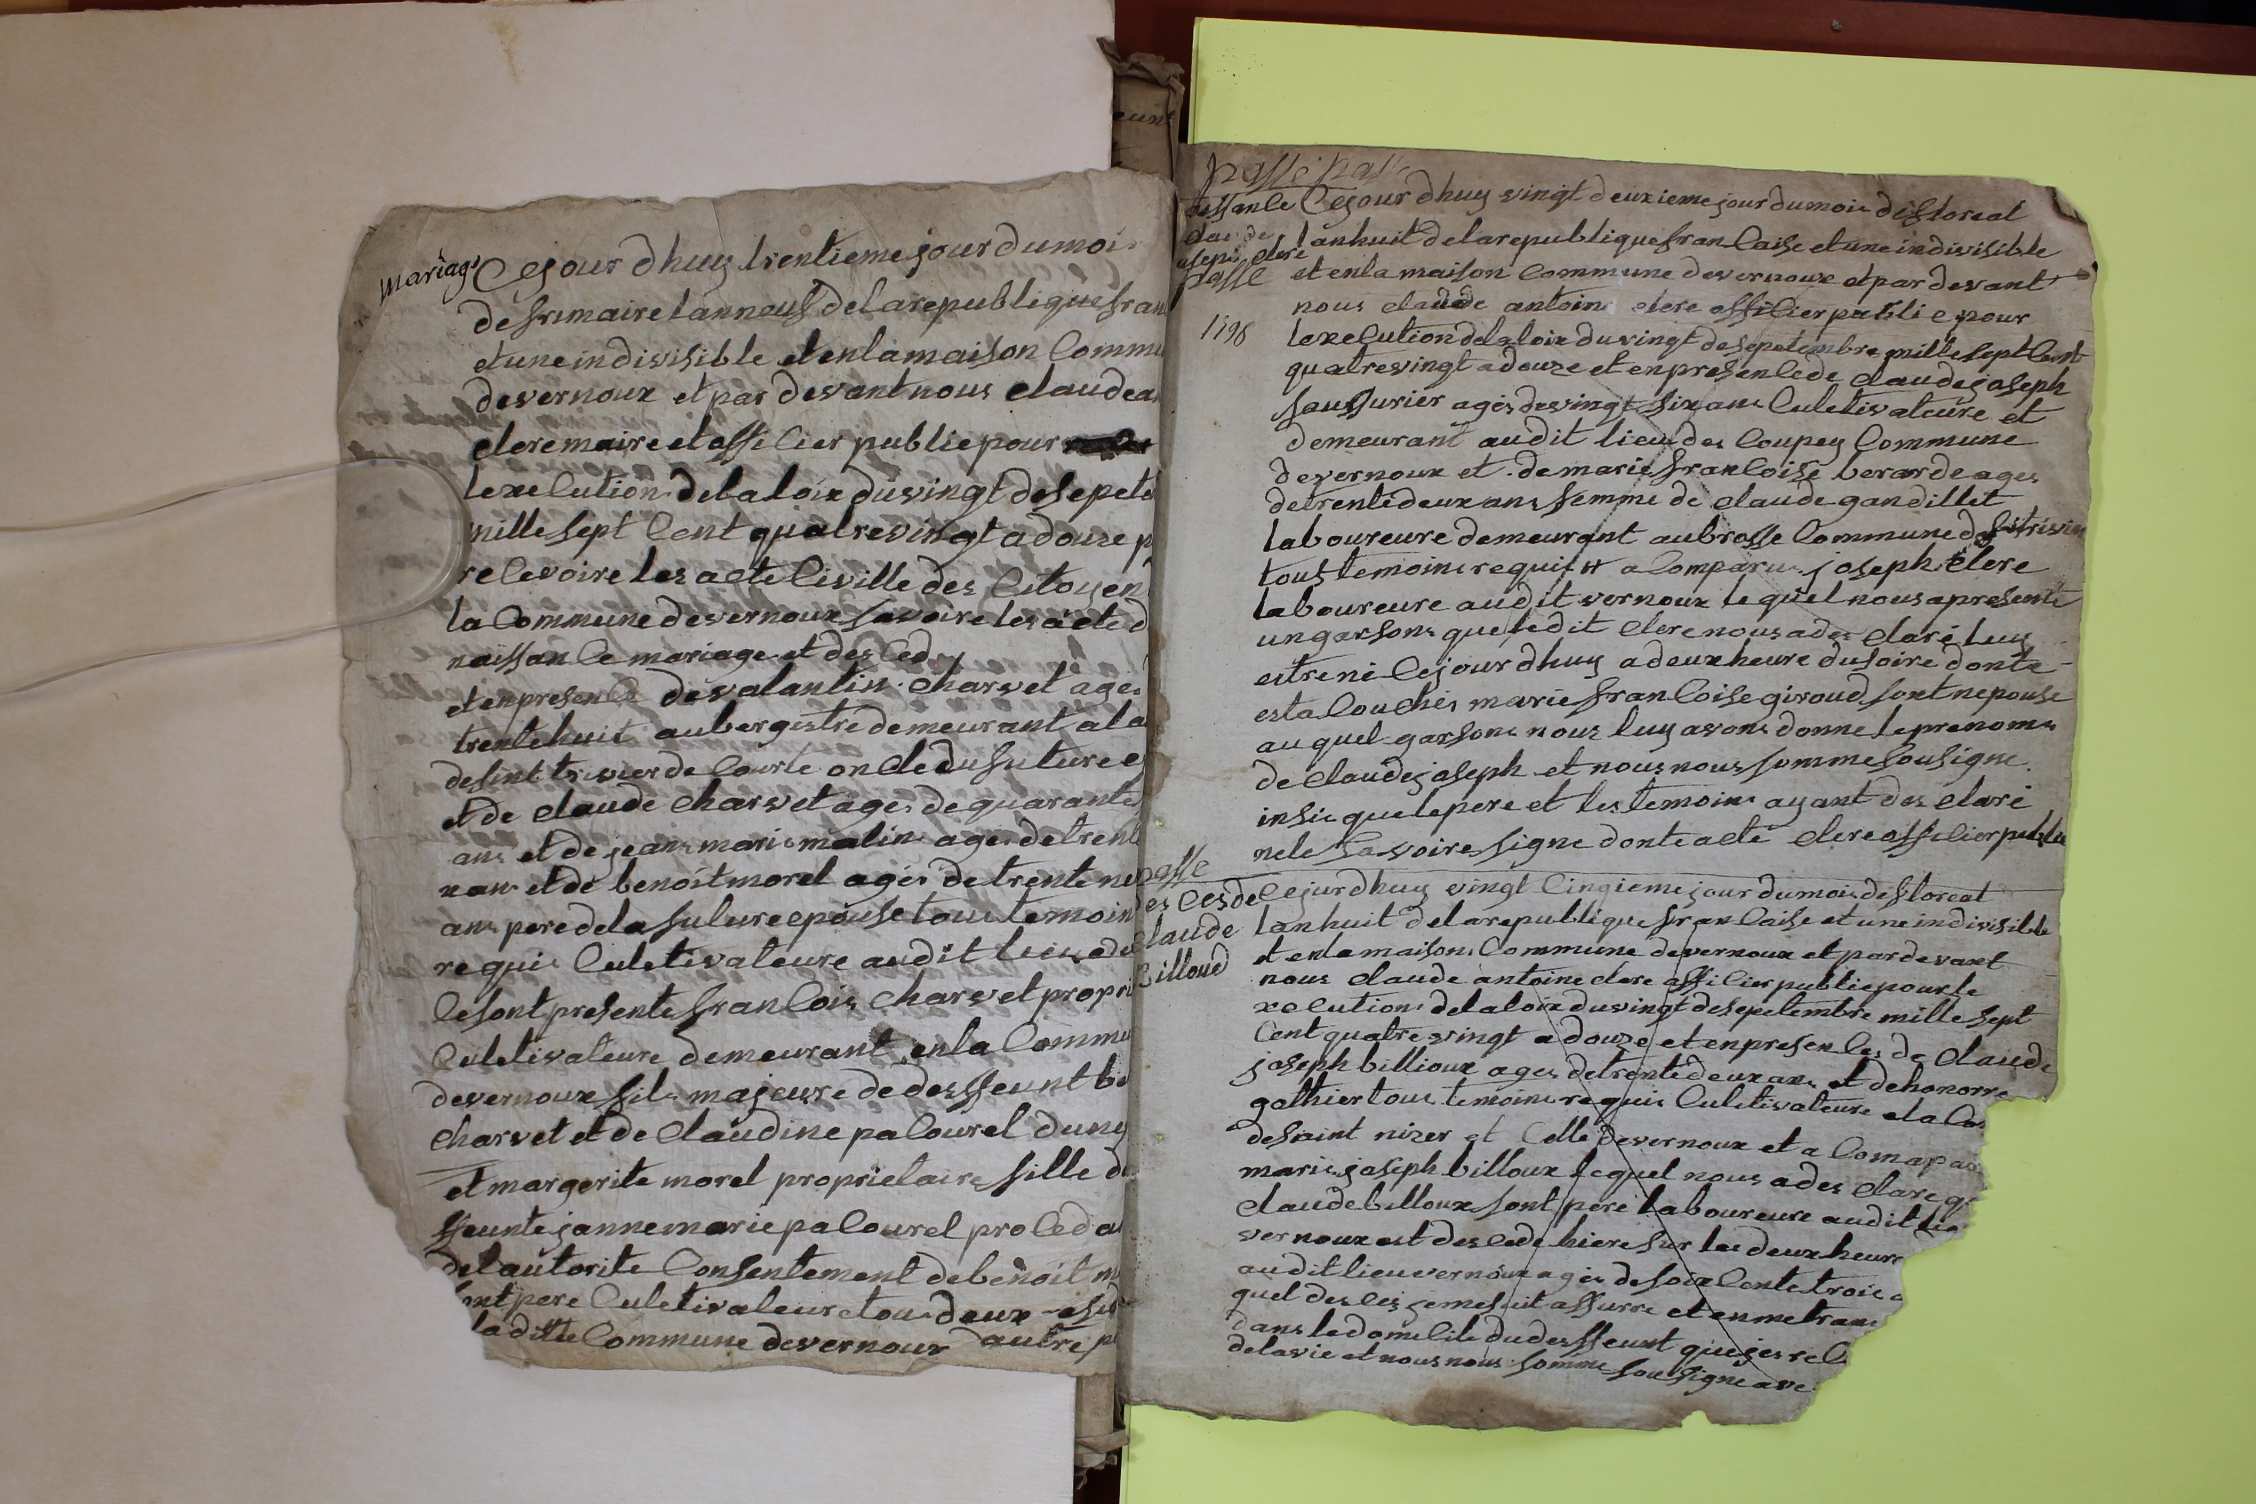 mariage
Cejour dhuy trentieme jour dumoi
de frimaire lanneuf delarepublique fran
etune indivisible etenlamaison Commu
devernoux et par devant nous claudea
clere maire et officier publicpour
lexelution delaloix duvingt desepte
mille sept Cent quatrevingt adouze p
relevoire les acte Civille des Citoyen
la Commune devernoux savoire les acte d
naissanle mariage et desCed
etenpresenle devalantin charvet ages
trentehuit aubergistre demeurant ala
desint trivier de Courte oncle dufuture e
et de claude charvet ages de quarante
ans et de jean marie malin ages detrent
xans et de benoist morel ages de trente ne
ans pere dela future epouse tous temoin
requis Culetivateure audit lieu de
Cesont presente franCois charvet propri
Culetivateure demeurant enla Commu
devernoux fils majeure de desffeunt be
charvet et de Claudine paCourel duney
et margerite morel proprietaire fille de
ffeunte jannemarie paCourel proCeda
delautorite Consentement de benoit m
ont pere Culetivateure tous deux
ladite Commune devernoux autre p
passé pass
naissanle
claude
joseph clere
passé
1798
Cejour dhuy vingt deuxieme jour dumois defloreal
lanhuit delarepublique franCaise etune indivisible
et enla maison Commune devernoux etpardevant
nous claude antoine clere officier public pour
lexelution delaloix duvingt desepetembre mille sept Cent
quatrevingt adouze et enpresenlede claude joseph
sauffurier ages devingt six ans Culetivateure et
demeurant audit lieu des Coupey Commune
devernoux et de marie franCoise berarde ages
detrentedeux ans femme de claude gandillet
laboureure demeurant aubrosse Commune de st trivier
tous temoins requis et aComparu joseph clere
laboureure audit vernoux lequel nous apresente
ungarsons queledit clere nous ades claré luy
estre né Cejour dhuy adeux heure dusoire donte
esta Couches marie franCoise giroud sont nepouse
auquel garsons nous luy avons donne leprenoms
de claude joseph et nous nous somme sousigne
insie quelepere et les temoins ayant des claré
nele savoire signe donte acte clere officier public
passé
des Ces de
Claude
Billoud
Cejurdhuy vingt Cinqieme jour dumois defloreal
lanhuit delarepublique franCaise et une indivisible
et enla maisons Commune devernoux et pardevant
nous claude antoine clere officier public pourle
xeCution delaloix duvingt desepetembre mille sept
Cent quatre vingt adouze et enpresenles de claude
joseph billioux ages detrentedeux ans et dehonorre
gathier tous temoins requis Culetivateure ala Co
desaint nizer et Celle devernoux et a Comapar
marie joseph billoux lequel nous ades clare q
claude billoux sont pere laboureure audit lieu
vernoux est desCede hiere sur les deux heure
audit lieu vernoux ages desoix Cente trois a
quel des Ces jemesuit assurre et enmetrans
dans ledomiCile dudesffeunt que jes reC
delavie et nous nous somme sousigne ave